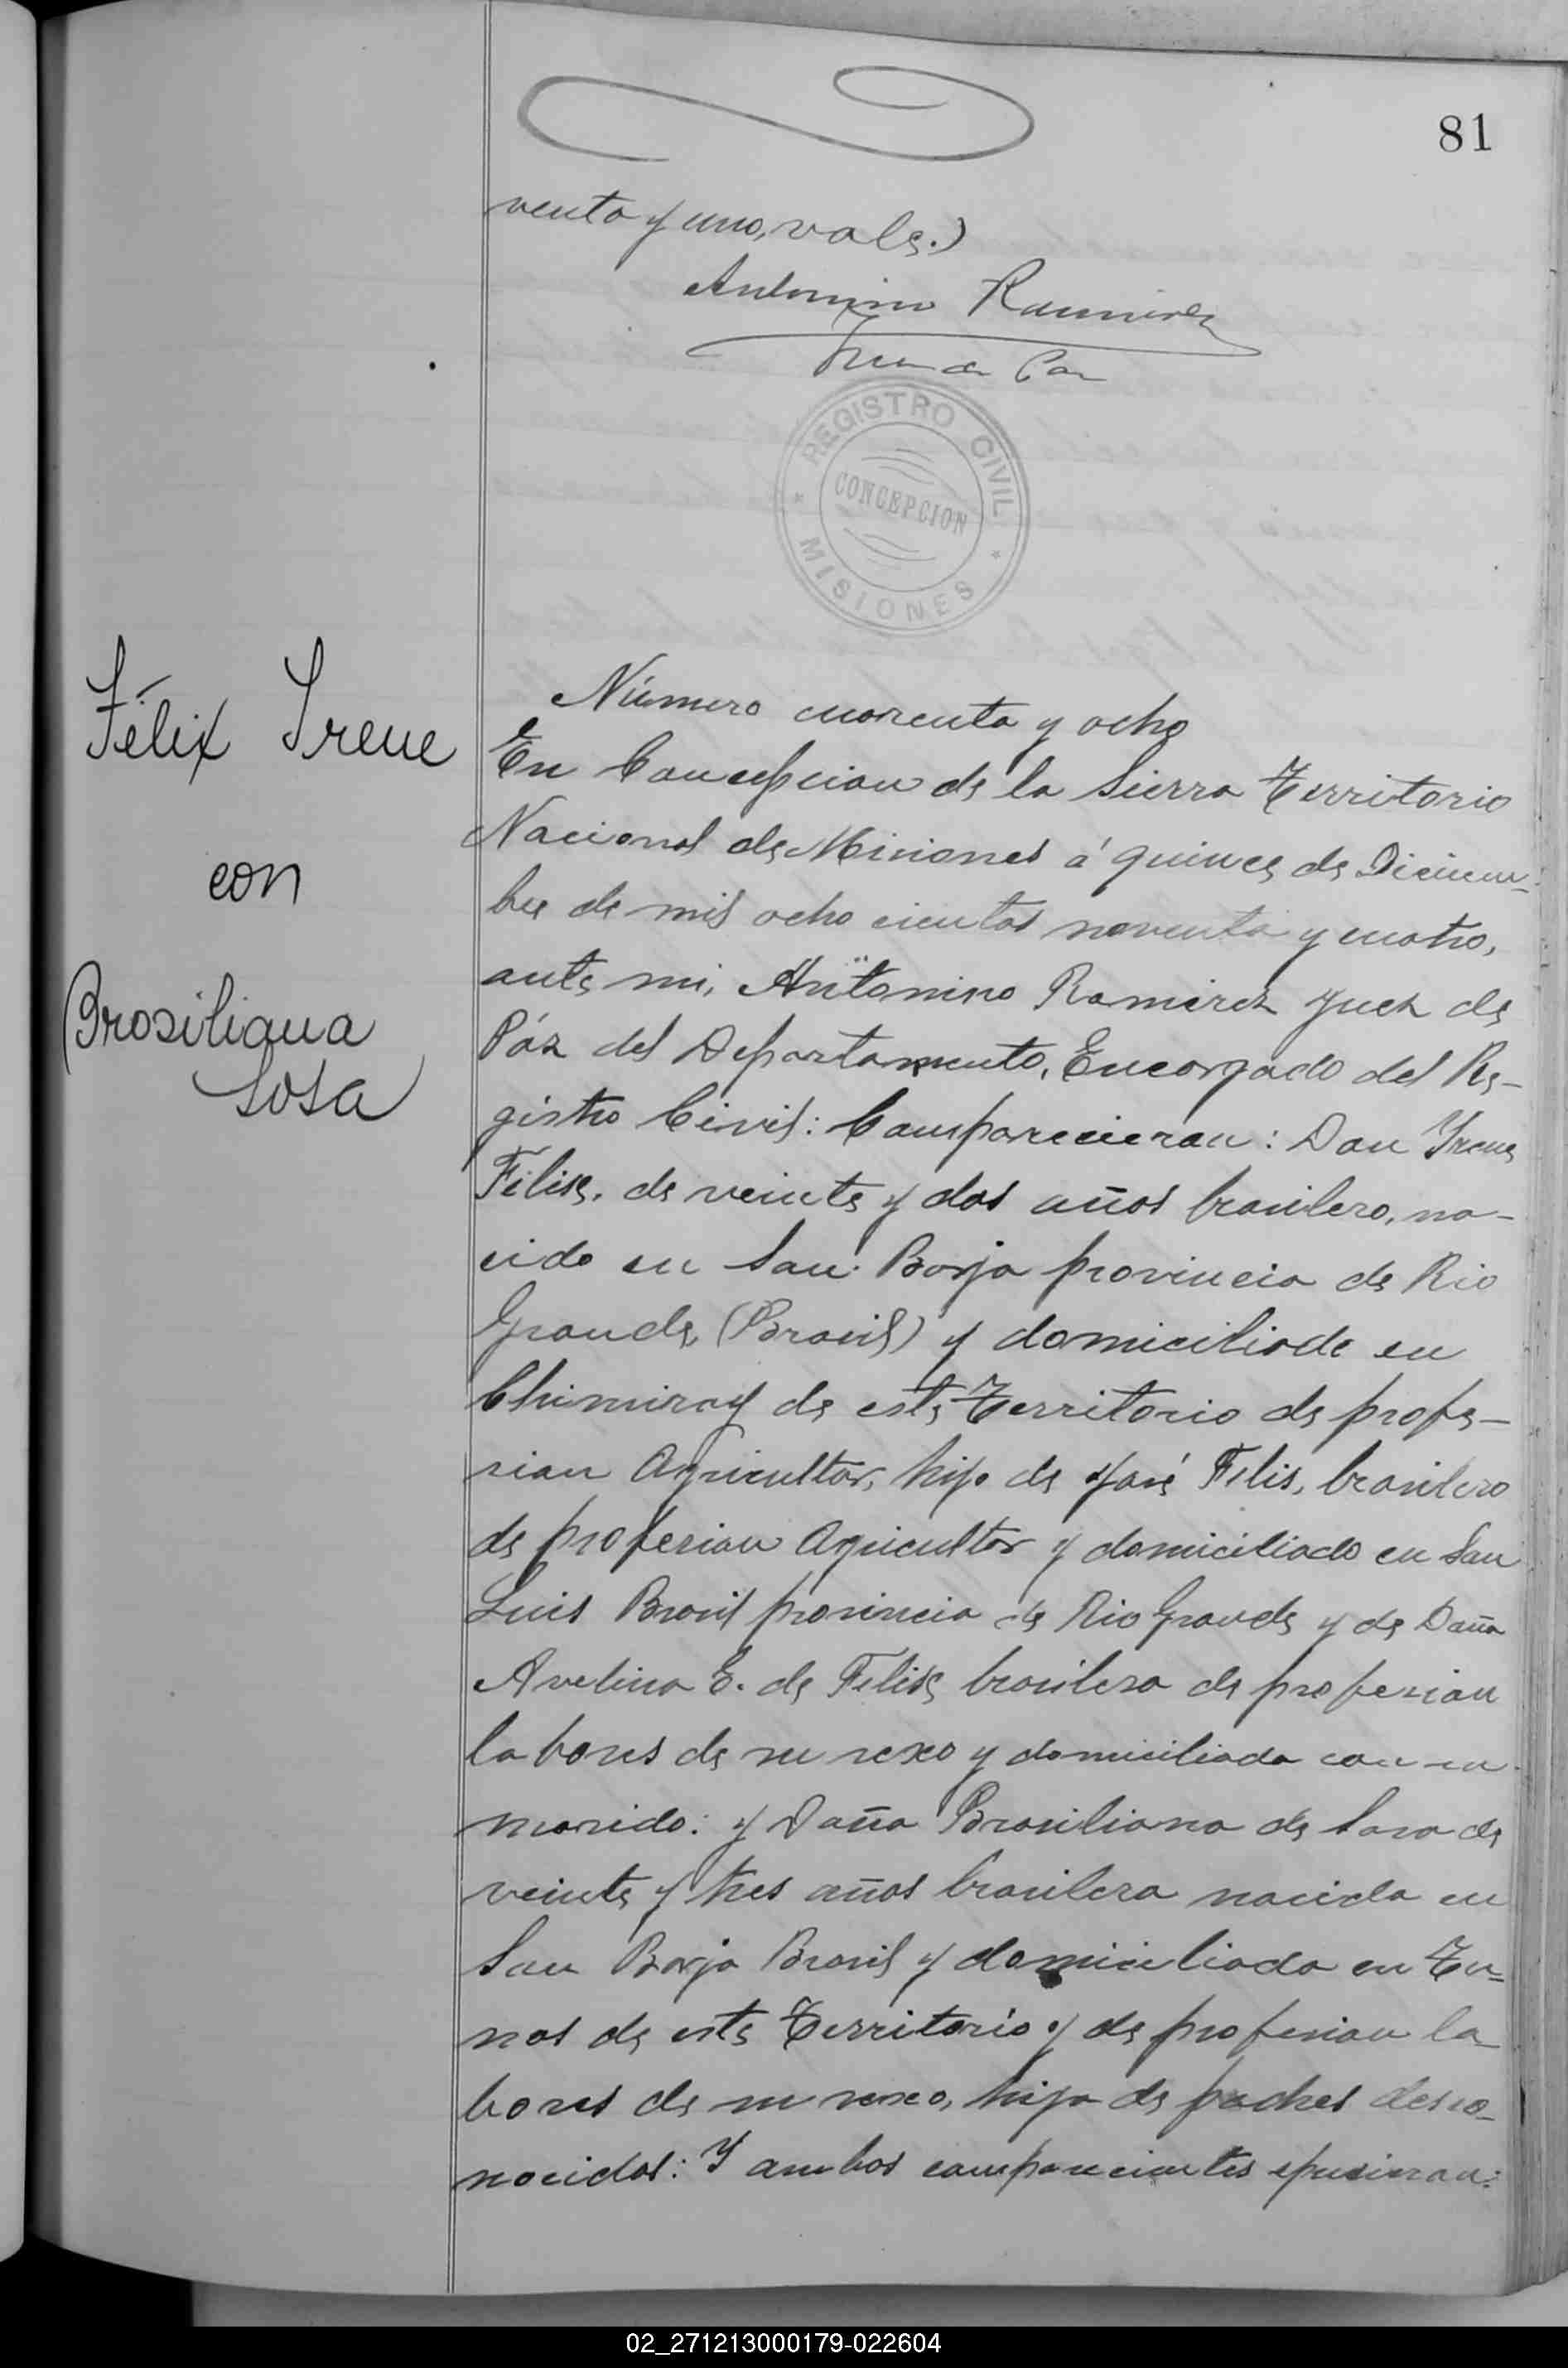 81
venta y uno, vale.)
Antonino Ramirez
Juez de Paz
REGISTRO CIVIL
CONCEPCION
MISIONES
Félix Irene
con
Brasiliana
Sosa
Número cuarenta y ocho
En Concepcion de la Sierra Territorio
Nacional de Misiones á quince de Diciem-
bre de mil ocho cientos noventa y cuatro,
ante mi, Antonino Ramirez Juez de
Páz del Departamento, Encargado del Re-
gistro Civil: Comparecieron: Don Yrene
Felise, de veinte y dos años brasilero, na-
cido en San Borja provincia de Rio
Grande, (Brasil) y domiciliado en
Chimiray de este Territorio de profe-
sion Agricultor, hijo de José Felis, brasilero
de profesion Agricultor y domiciliado en San
Luis Brasil provincia de Rio Grande y de Doña
Avelina E. de Felise brasilera de profesion
labores de su sexo y domiciliada con su
marido: y Doña Brasiliana de Sosa de
veinte y tres años brasilera nacida en
San Borja Brasil y domiciliada en Tu-
nas de este Territorio y de profesion la
bores de su sexo, hija de padres desco-
nocidos: Y ambos comparecientes epusieron:
02_271213000179-022604